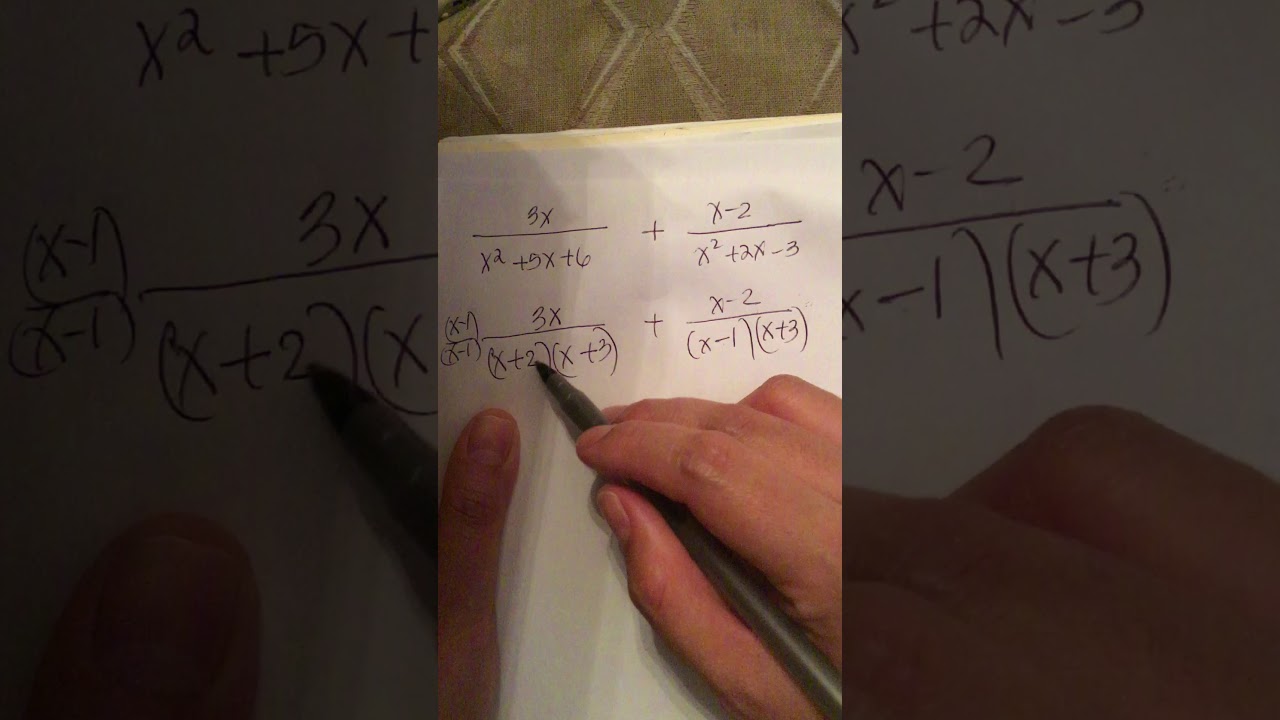 3x / x² + 5x + 6 + x - 2 / x² + 2x - 3
(x-1) / (x-1) 3x / (x+2)(x+3) + x - 2 / (x-1)(x+3)